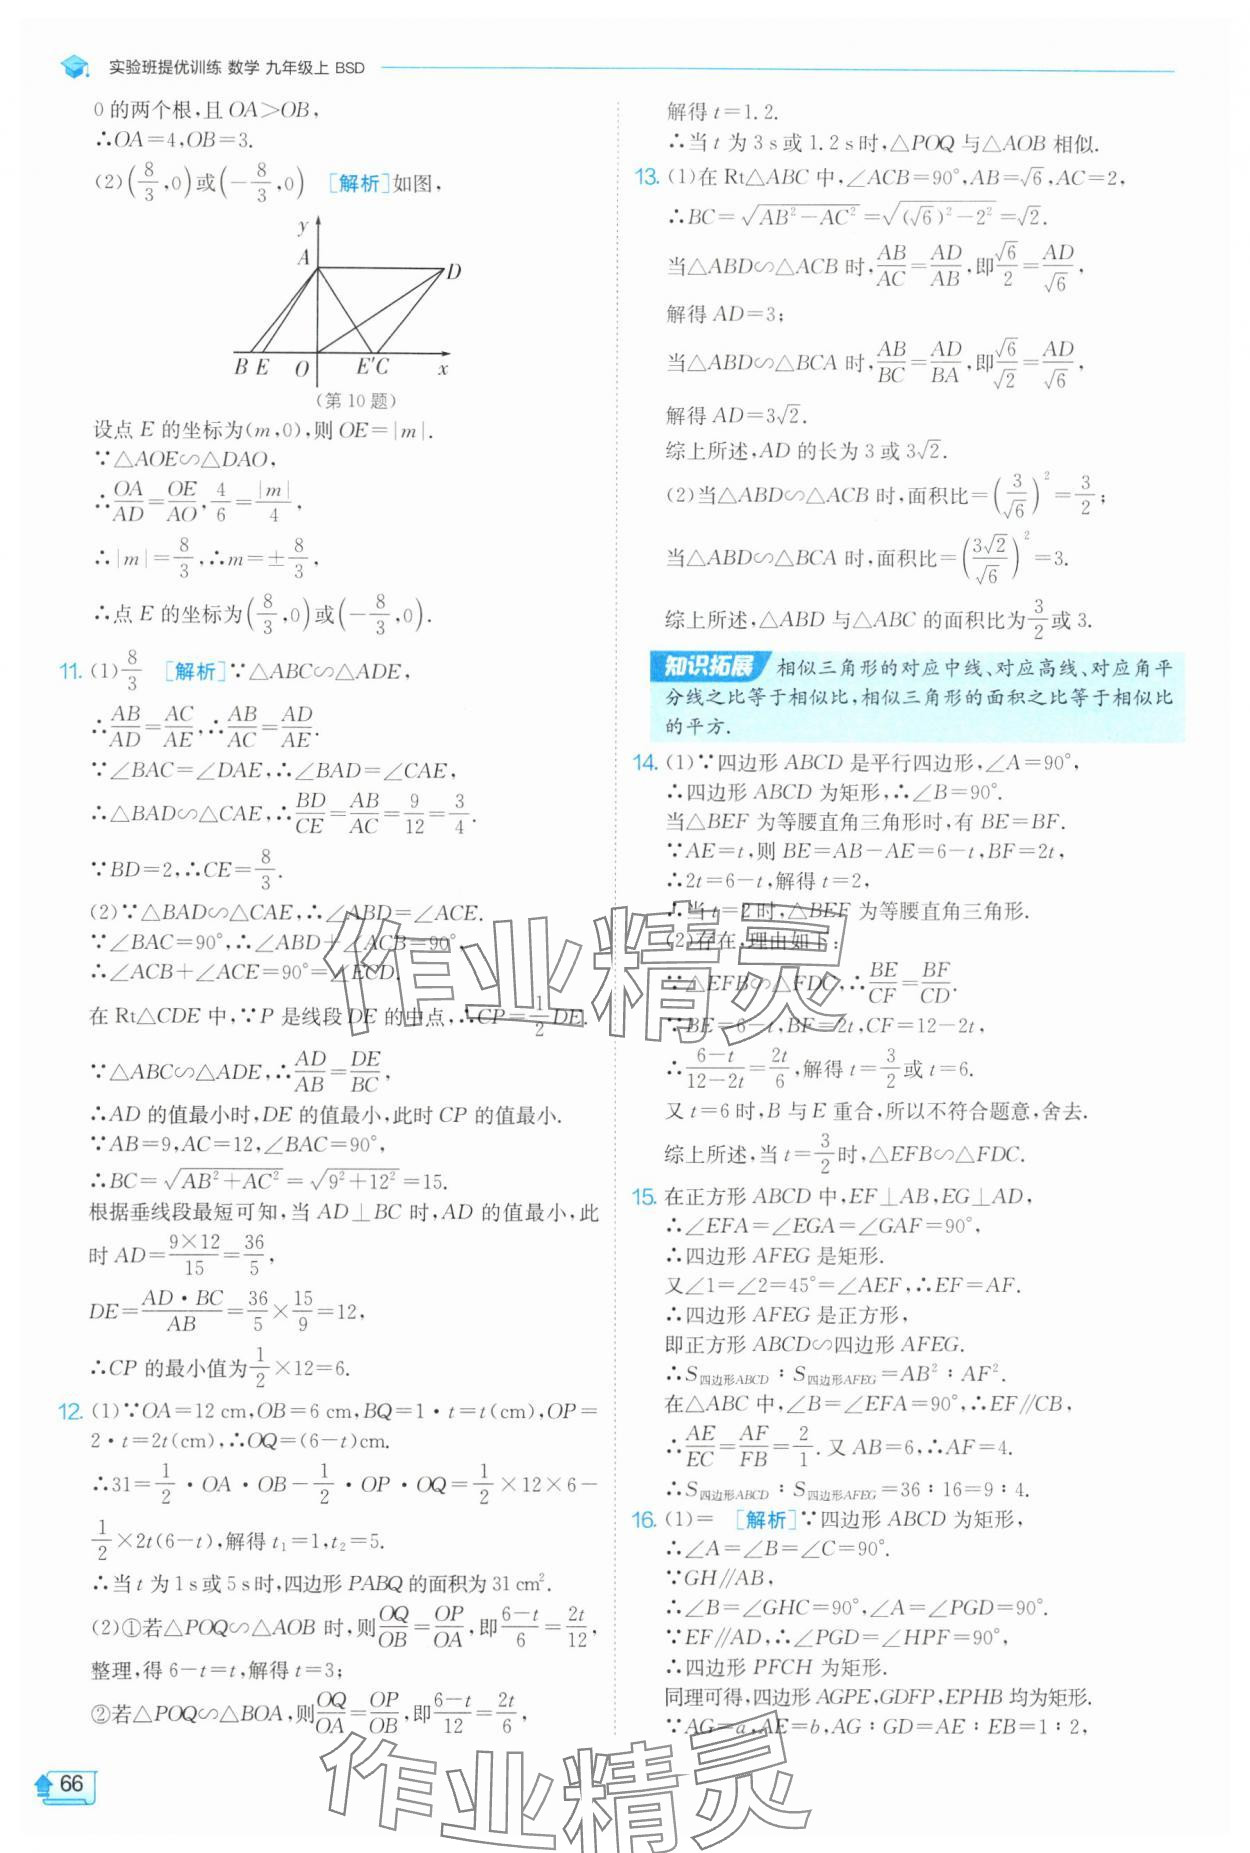 实验班提优训练 数学 九年级上 BSD
0的两个根,且OA>OB,
∴OA=4,OB=3.
(2)(8/3,0)或(-8/3,0) [解析]如图,
y
A
D
B E O E′C x
(第10题)
设点E的坐标为(m,0),则OE=|m|.
∵△AOE∽△DAO,
∴OA/AD=OE/AO,4/6=|m|/4,
∴|m|=8/3,∴m=±8/3,
∴点E的坐标为(8/3,0)或(-8/3,0).
11. (1)8/3 [解析]∵△ABC∽△ADE,
∴AB/AD=AC/AE,∴AB/AC=AD/AE.
∵∠BAC=∠DAE,∴∠BAD=∠CAE,
∴△BAD∽△CAE,∴BD/CE=AB/AC=9/12=3/4.
∵BD=2,∴CE=8/3.
(2)∵△BAD∽△CAE,∴∠ABD=∠ACE.
∵∠BAC=90°,∴∠ABD+∠ACB=90°,
∴∠ACB+∠ACE=90°=∠ECD.
在Rt△CDE中,∵P是线段DE的中点,∴CP=1/2DE.
∵△ABC∽△ADE,∴AD/AB=DE/BC,
∴AD的值最小时,DE的值最小,此时CP的值最小.
∵AB=9,AC=12,∠BAC=90°,
∴BC=√(AB²+AC²)=√(9²+12²)=15.
根据垂线段最短可知,当AD⊥BC时,AD的值最小,此
时AD=9×12/15=36/5,
DE=AD·BC/AB=36/5×15/9=12,
∴CP的最小值为1/2×12=6.
12. (1)∵OA=12 cm,OB=6 cm,BQ=1·t=t(cm),OP=
2·t=2t(cm),∴OQ=(6-t)cm.
∴31=1/2·OA·OB-1/2·OP·OQ=1/2×12×6-
1/2×2t(6-t),解得t₁=1,t₂=5.
∴当t为1 s或5 s时,四边形PABQ的面积为31 cm².
(2)①若△POQ∽△AOB时,则OQ/OB=OP/OA,即6-t/6=2t/12,
整理,得6-t=t,解得t=3;
②若△POQ∽△BOA,则OQ/OA=OP/OB,即6-t/12=2t/6,
66
解得t=1.2.
∴当t为3 s或1.2 s时,△POQ与△AOB相似.
13. (1)在Rt△ABC中,∠ACB=90°,AB=√6,AC=2,
∴BC=√(AB²-AC²)=√((√6)²-2²)=√2.
当△ABD∽△ACB时,AB/AC=AD/AB,即√6/2=AD/√6,
解得AD=3;
当△ABD∽△BCA时,AB/BC=AD/BA,即√6/√2=AD/√6,
解得AD=3√2.
综上所述,AD的长为3或3√2.
(2)当△ABD∽△ACB时,面积比=(3/√6)²=3/2;
当△ABD∽△BCA时,面积比=(3√2/√6)²=3.
综上所述,△ABD与△ABC的面积比为3/2或3.
知识拓展 相似三角形的对应中线、对应高线、对应角平
分线之比等于相似比,相似三角形的面积之比等于相似比
的平方.
14. (1)∵四边形ABCD是平行四边形,∠A=90°,
∴四边形ABCD为矩形,∴∠B=90°.
当△BEF为等腰直角三角形时,有BE=BF.
∵AE=t,则BE=AB-AE=6-t,BF=2t,
∴2t=6-t,解得t=2,
∴当t=2时,△BEF为等腰直角三角形.
(2)存在,理由如下:
∵△EFB∽△FDC,∴BE/CF=BF/CD.
∵BE=6-t,BF=2t,CF=12-2t,
∴6-t/12-2t=2t/6,解得t=3/2或t=6.
又t=6时,B与E重合,所以不符合题意,舍去.
综上所述,当t=3/2时,△EFB∽△FDC.
15. 在正方形ABCD中,EF⊥AB,EG⊥AD,
∴∠EFA=∠EGA=∠GAF=90°,
∴四边形AFEG是矩形.
又∠1=∠2=45°=∠AEF,∴EF=AF.
∴四边形AFEG是正方形,
即正方形ABCD∽四边形AFEG.
∴S四边形ABCD:S四边形AFEG=AB²:AF².
在△ABC中,∠B=∠EFA=90°,∴EF∥CB,
∴AE/EC=AF/FB=2/1.又AB=6,∴AF=4.
∴S四边形ABCD:S四边形AFEG=36:16=9:4.
16. (1)= [解析]∵四边形ABCD为矩形,
∴∠A=∠B=∠C=90°.
∵GH∥AB,
∴∠B=∠GHC=90°,∠A=∠PGD=90°.
∵EF∥AD,∴∠PGD=∠HPF=90°,
∴四边形PFCH为矩形.
同理可得,四边形AGPE,GDFP,EPHB均为矩形.
∵AG=a,AE=b,AG:GD=AE:EB=1:2,
作业精灵
作业精灵